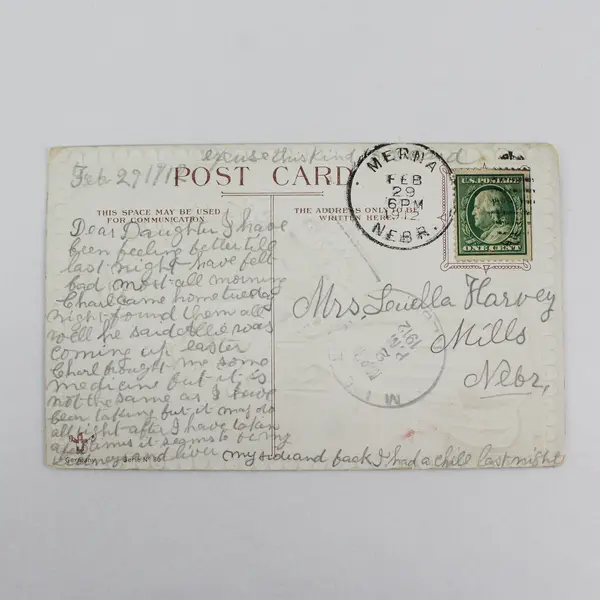 excuse this kind
Feb 29 1912
POST CARD
THIS SPACE MAY BE USED
FOR COMMUNICATION
THE ADDRESS ONLY TO BE
WRITTEN HERE
MERNA
FEB
29
6 PM
1912
NEBR.
U.S. POSTAGE
ONE CENT
Dear Daughter I have
been feeling better till
last night have felt
bad most all morning
Charl came home tuesday
night found them all
well he said Allie was
coming up easter
Charl brought me some
medicine but it is
not the same as I have
been taking but it may do
all right after I have taken
a few times it seems to be my
and liver my side and back I had a chill last night
Mrs Louella Harvey
Mills
Nebr,
1912
Germany
Serie No